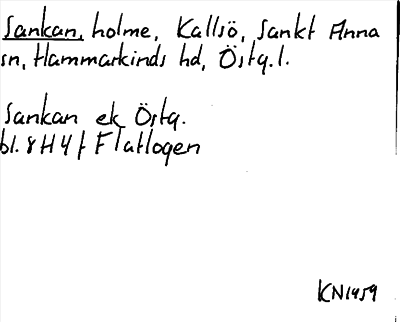 Sankan, holme, Kallsö, Sankt Anna
sn, Hammarkinds hd, Östg. l.
Sankan ek Östg.
bl. 8H4f Flatlogen
KN1959